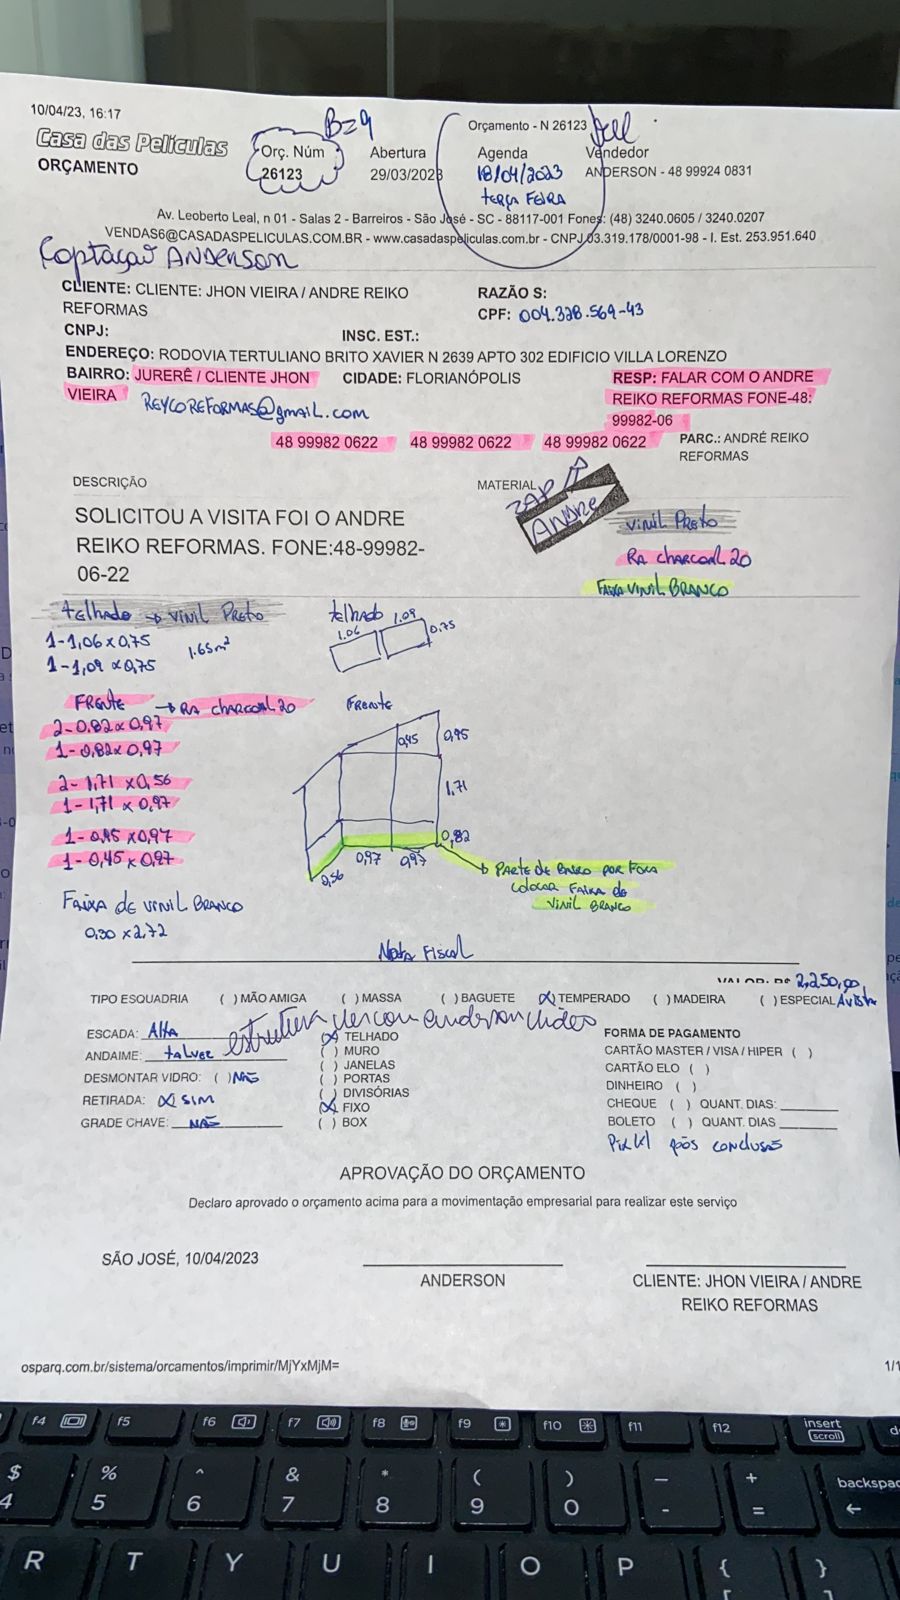 10/04/23, 16:17
B=9
Orçamento - N 26123
Casa das Películas
ORÇAMENTO
Orç. Núm
26123
Abertura
29/03/2023
Agenda
18/04/2023
terça FEIRA
Vendedor
ANDERSON - 48 99924 0831
Av. Leoberto Leal, n 01 - Salas 2 - Barreiros - São José - SC - 88117-001 Fones: (48) 3240.0605 / 3240.0207
VENDAS6@CASADASPELICULAS.COM.BR - www.casadaspeliculas.com.br - CNPJ 03.319.178/0001-98 - I. Est. 253.951.640
Coptaçao ANDERSON
CLIENTE: CLIENTE: JHON VIEIRA / ANDRE REIKO
REFORMAS
RAZÃO S:
CPF: 004.328.569-43
CNPJ:
INSC. EST.:
ENDEREÇO: RODOVIA TERTULIANO BRITO XAVIER N 2639 APTO 302 EDIFICIO VILLA LORENZO
BAIRRO: JURERÊ / CLIENTE JHON
VIEIRA
CIDADE: FLORIANÓPOLIS
RESP: FALAR COM O ANDRE
REIKO REFORMAS FONE-48:
99982-06
REYCOREFORMAS@gmail.com
48 99982 0622 48 99982 0622 48 99982 0622
PARC.: ANDRÉ REIKO
REFORMAS
DESCRIÇÃO
MATERIAL
ZAP
ANDRE
SOLICITOU A VISITA FOI O ANDRE
REIKO REFORMAS. FONE:48-99982-
06-22
VINIL PRETO
RA CHARCOAL 20
FAIXA VINIL BRANCO
telhado → VINIL PRETO
1-1,06 x 0,75
1-1,09 x 0,75
1.65m²
telhado
1.06 1.09
0.75
FRENTE → RA CHARCOAL 20
2-0.82 x 0,97
1-0.82 x 0,97
2-1,71 x 0,56
1-1,71 x 0,97
1-0,95 x 0,97
1-0,45 x 0,97
FRENTE
0,45 0,95
1,71
0,82
0,97 0,97
0,56
PARTE DE BAIXO POR FORA
COLOCAR FAIXA DE
VINIL BRANCO
FAIXA DE VINIL BRANCO
0,30 x 2,72
Nota Fiscal
VALOR: R$ 2,250,00
Avista
TIPO ESQUADRIA ( ) MÃO AMIGA ( ) MASSA ( ) BAGUETE (X) TEMPERADO ( ) MADEIRA ( ) ESPECIAL
ESCADA: Alta
ANDAIME: talvez
DESMONTAR VIDRO: ( ) NÃO
RETIRADA: (X) SIM
GRADE CHAVE: NÃO
estrutura ver com anderson
(X) TELHADO
( ) MURO
( ) JANELAS
( ) PORTAS
( ) DIVISÓRIAS
(X) FIXO
( ) BOX
FORMA DE PAGAMENTO
CARTÃO MASTER / VISA / HIPER ( )
CARTÃO ELO ( )
DINHEIRO ( )
CHEQUE ( ) QUANT. DIAS:
BOLETO ( ) QUANT. DIAS
após conclusão
APROVAÇÃO DO ORÇAMENTO
Declaro aprovado o orçamento acima para a movimentação empresarial para realizar este serviço
SÃO JOSÉ, 10/04/2023
ANDERSON
CLIENTE: JHON VIEIRA / ANDRE
REIKO REFORMAS
osparq.com.br/sistema/orcamentos/imprimir/MjYxMjM=
1/1
f4 f5 f6 f7 f8 f9 f10 f11 f12 insert
scroll
$ % ^ & * ( ) _ + backspac
4 5 6 7 8 9 0 - =
R T Y U I O P { }